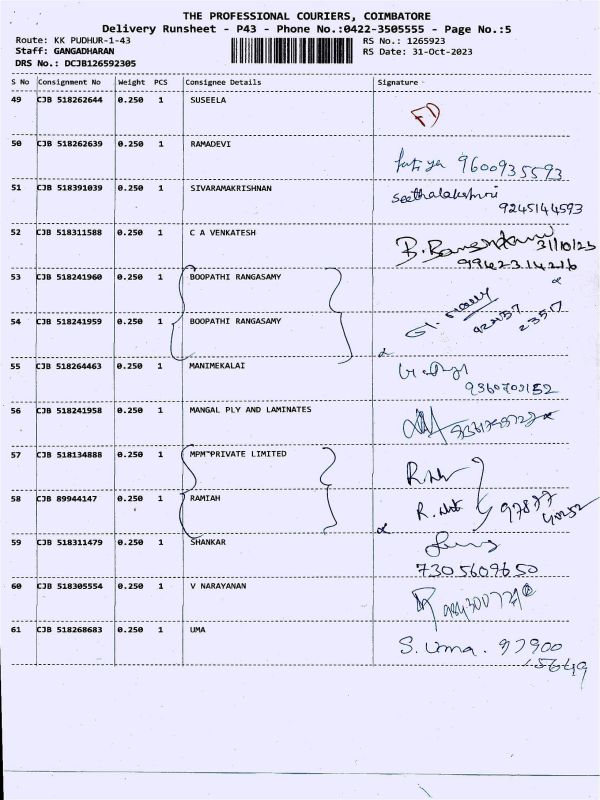 THE PROFESSIONAL COURIERS, COIMBATORE
Delivery Runsheet - P43 - Phone No.:0422-3505555 - Page No.:5
Route: KK PUDHUR-1-43 RS No.: 1265923
Staff: GANGADHARAN RS Date: 31-Oct-2023
DRS No.: DCJB126592305
S No Consignment No Weight PCS Consignee Details Signature
49 CJB 518262644 0.250 1 SUSEELA
50 CJB 518262639 0.250 1 RAMADEVI
9600935593
51 CJB 518391039 0.250 1 SIVARAMAKRISHNAN seethalakshmi
9245144593
52 CJB 518311588 0.250 1 C A VENKATESH
31/10/23
9942314216
53 CJB 518241960 0.250 1 BOOPATHI RANGASAMY
54 CJB 518241959 0.250 1 BOOPATHI RANGASAMY
55 CJB 518264463 0.250 1 MANIMEKALAI
56 CJB 518241958 0.250 1 MANGAL PLY AND LAMINATES
57 CJB 518134888 0.250 1 MPM PRIVATE LIMITED
58 CJB 89944147 0.250 1 RAMIAH
59 CJB 518311479 0.250 1 SHANKAR
7305609650
60 CJB 518305554 0.250 1 V NARAYANAN
61 CJB 518268683 0.250 1 UMA S. Uma. 97900